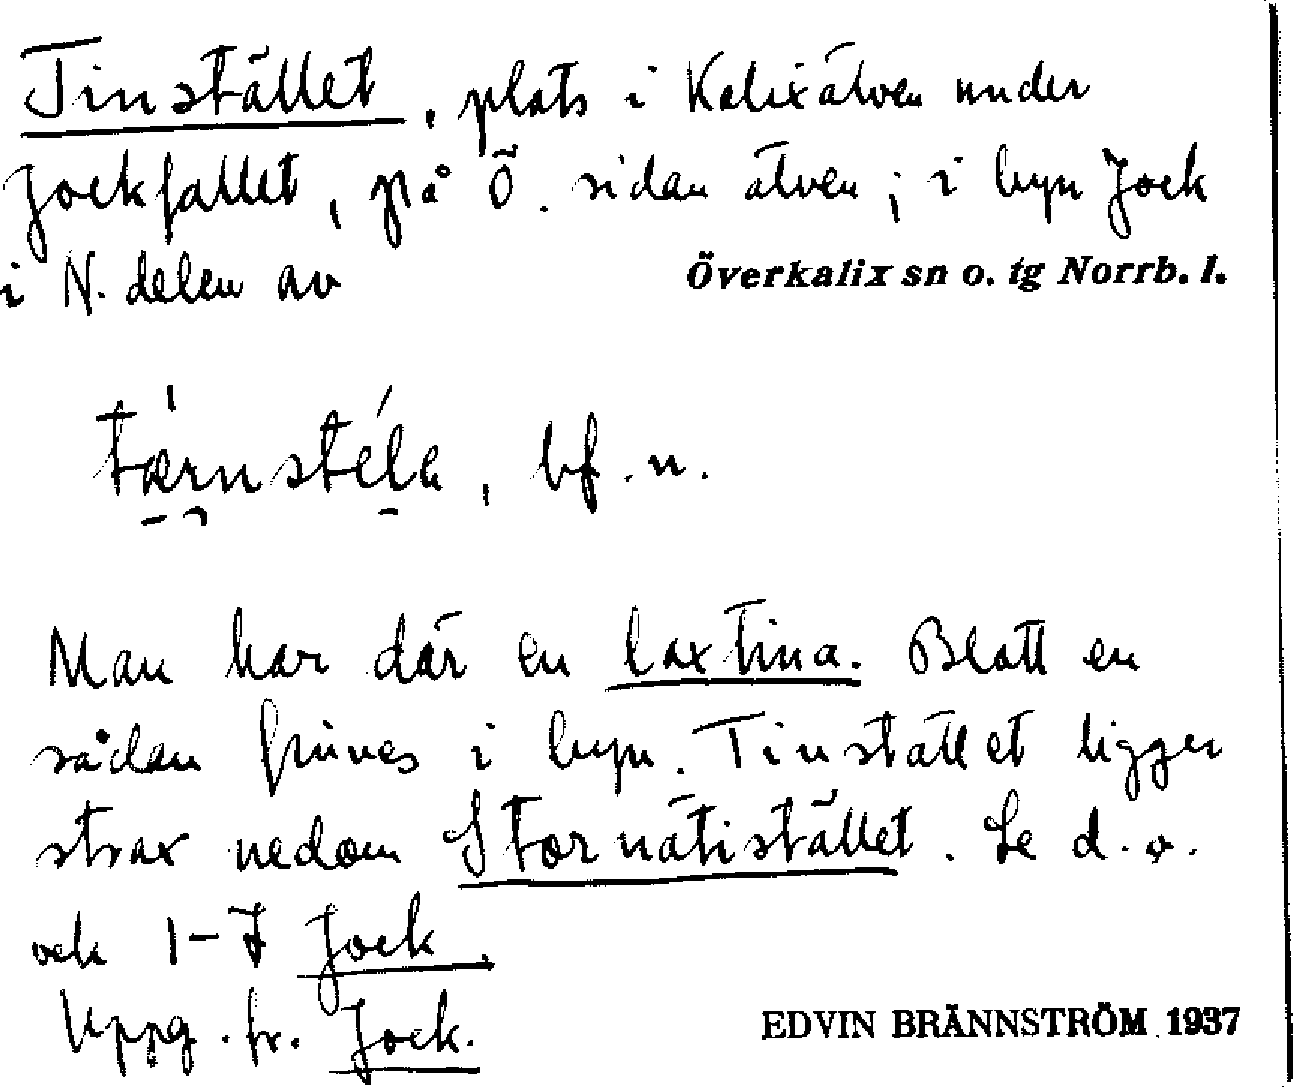 Tinstället, plats i Kalixälven under
Jockfallet, på Ö. sidan älven; i byn Jock
i N. delen av Överkalix sn o. tg Norrb. l.
tærnstéla, bf. n.
Man har där en laxtina. Blott en
sådan finnes i byn. Tinstället ligger
strax nedom Stornätistället. Se d. o.
och 1-7 Jock.
Uppg. fr. Jock.
EDVIN BRÄNNSTRÖM 1937